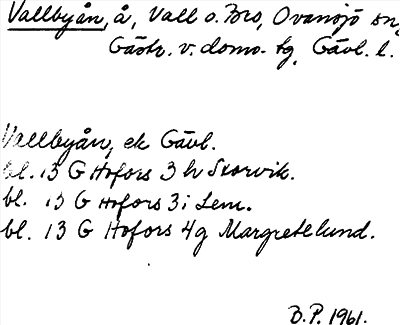 Vallbyån, å, Vall o. Bro, Ovansjö sn,
Gästr. v. doms. tg, Gävl. l.
Vallbyån, ek Gävl.
bl. 13 G Hofors 3 h Storvik.
bl. 13 G Hofors 3 i Lem.
bl. 13 G Hofors 4 g Margretelund.
B.P. 1961.